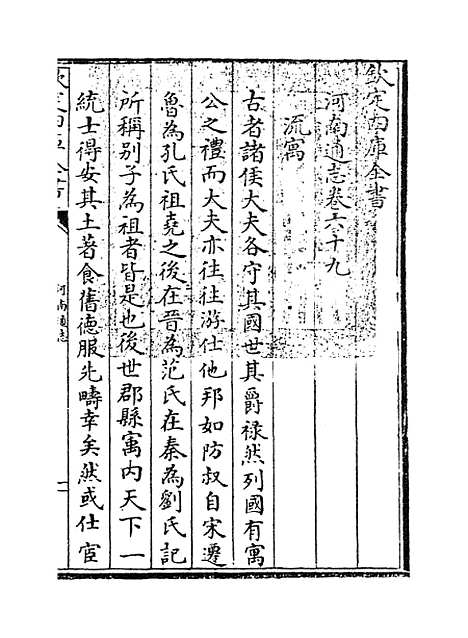 欽定四庫全書
河南通志卷六十九
流寓
古者諸侯大夫各守其國世其爵祿然列國有寓
公之禮而大夫亦往往游仕他邦如防叔自宋遷
魯為孔氏祖堯之後在晉為范氏在秦為劉氏記
所稱別子為祖者皆是也後世郡縣寓内天下一
統士得安其土著食舊德服先疇幸矣然或仕宦
欽定四庫全書
河南通志
一